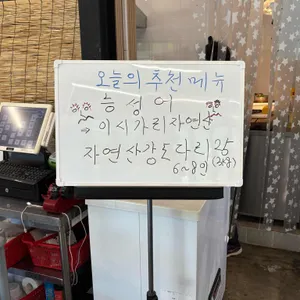 오늘의 추천메뉴
능성어
→ 이시가리 자연산
자연산 강도다리 25
6~8인 (3kg)